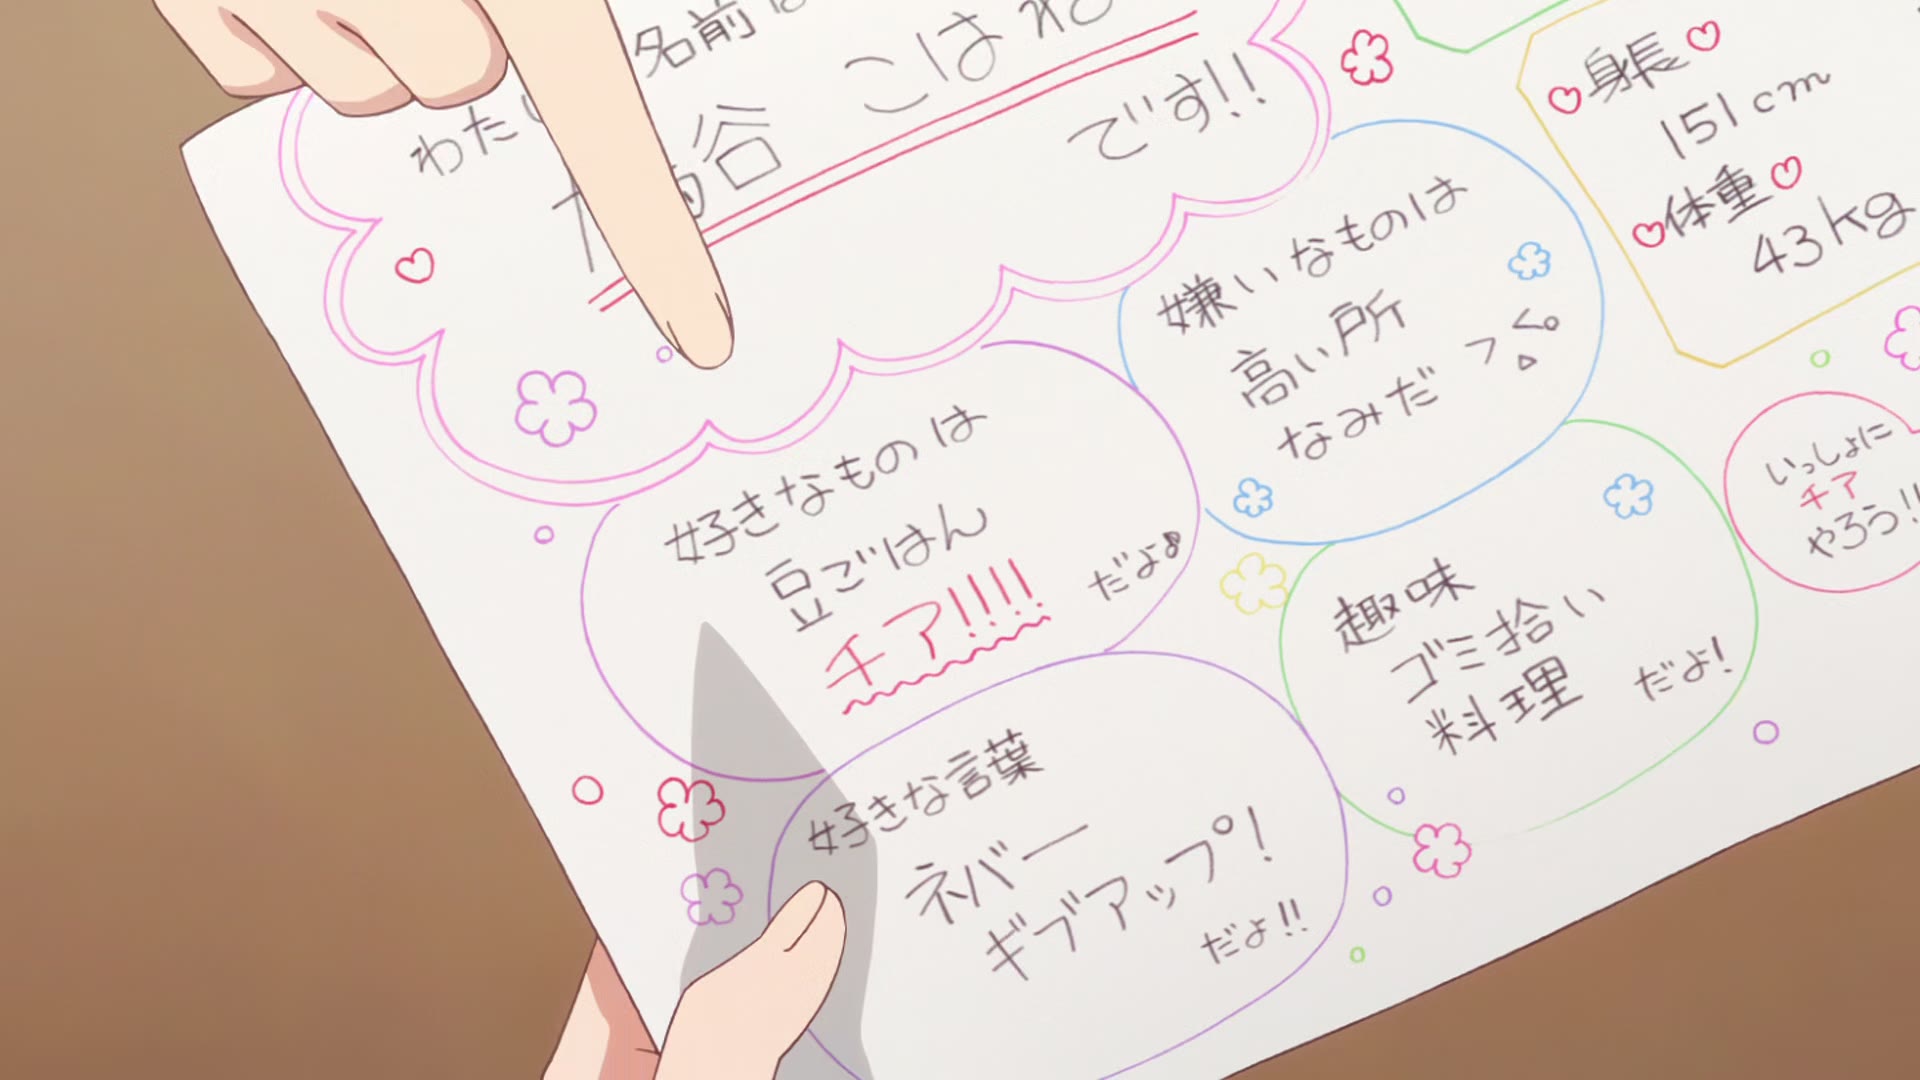 名前は
わたし
谷 こはね
です!!
身長
151cm
体重
43kg
嫌いなものは
高い所
なみだ
好きなものは
豆ごはん
チア!!!!
だよ♪
いっしょに
チア
やろう!!
趣味
ゴミ拾い
料理
だよ!
好きな言葉
ネバー
ギブアップ!
だよ!!